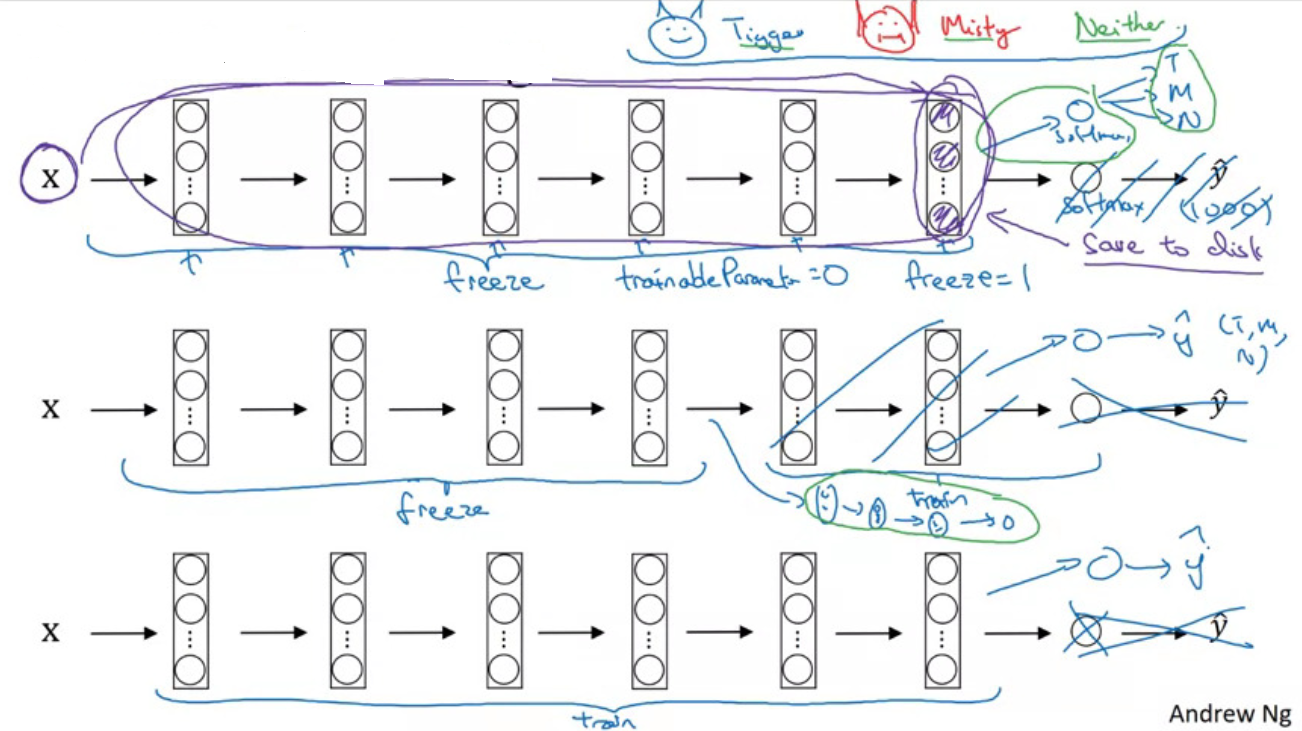 Tigger Misty Neither
T
M
N
x softmax ŷ
softmax (1000)
save to disk
freeze trainableParameter=0 freeze=1
ŷ (T, M,
N)
x ŷ
freeze train
ŷ
x ŷ
train
Andrew Ng